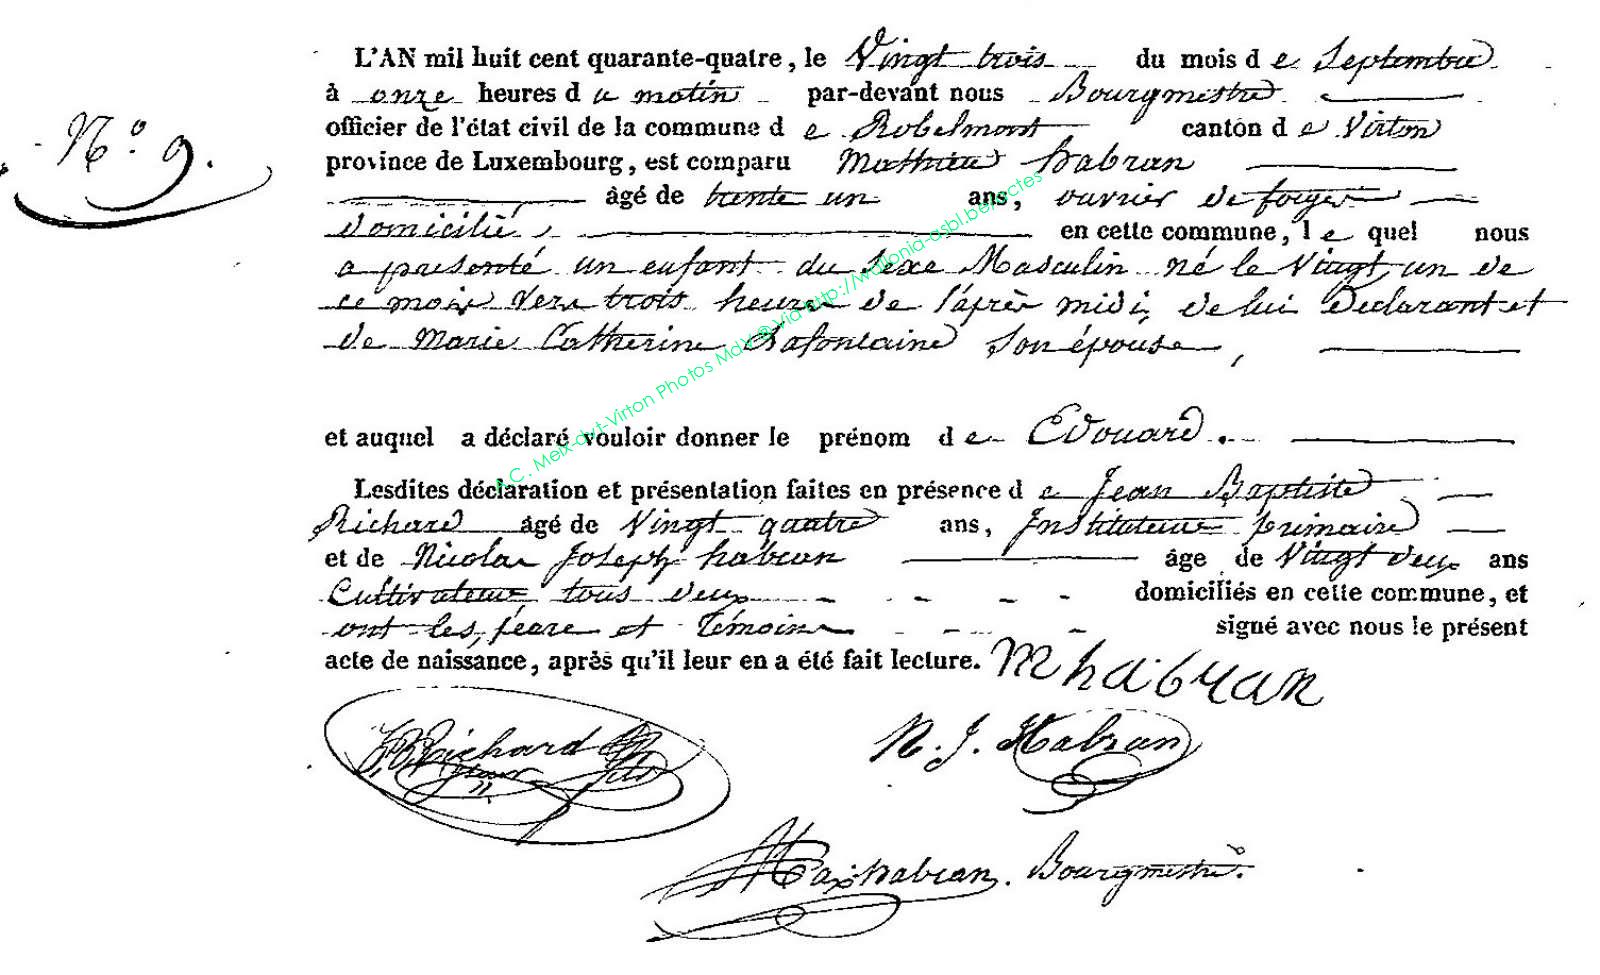 L'AN mil huit cent quarante-quatre, le Vingt trois du mois d e Septembre
à onze heures d u matin par-devant nous Bourgmestre
officier de l'état civil de la commune d e Robelmont canton d e Virton
N.º 9.
province de Luxembourg, est comparu Mathieu habran
âgé de trente un ans, ouvrier de forges
domicilié, en cette commune, l e quel nous
a présenté un enfant du sexe Masculin né le Vingt un de
ce mois vers trois heures de l'après midi, de lui Declarant et
de Marie Catherine Lafontaine son épouse,
et auquel a déclaré vouloir donner le prénom d e Edouard.
Lesdites déclaration et présentation faites en présence d e Jean Baptiste
Richard âgé de Vingt quatre ans, Instituteur primaire
et de Nicolas Joseph habran âge de Vingt deux ans
Cultivateur, tous deux domiciliés en cette commune, et
ont les, peare et Témoins signé avec nous le présent
acte de naissance, après qu'il leur en a été fait lecture. M habran
J B Richard
N. J. Habran
habran. Bourgmestre.
A.C. Meix-dvt-Virton Photos MdV @ via http://wallonia-asbl.be/actes